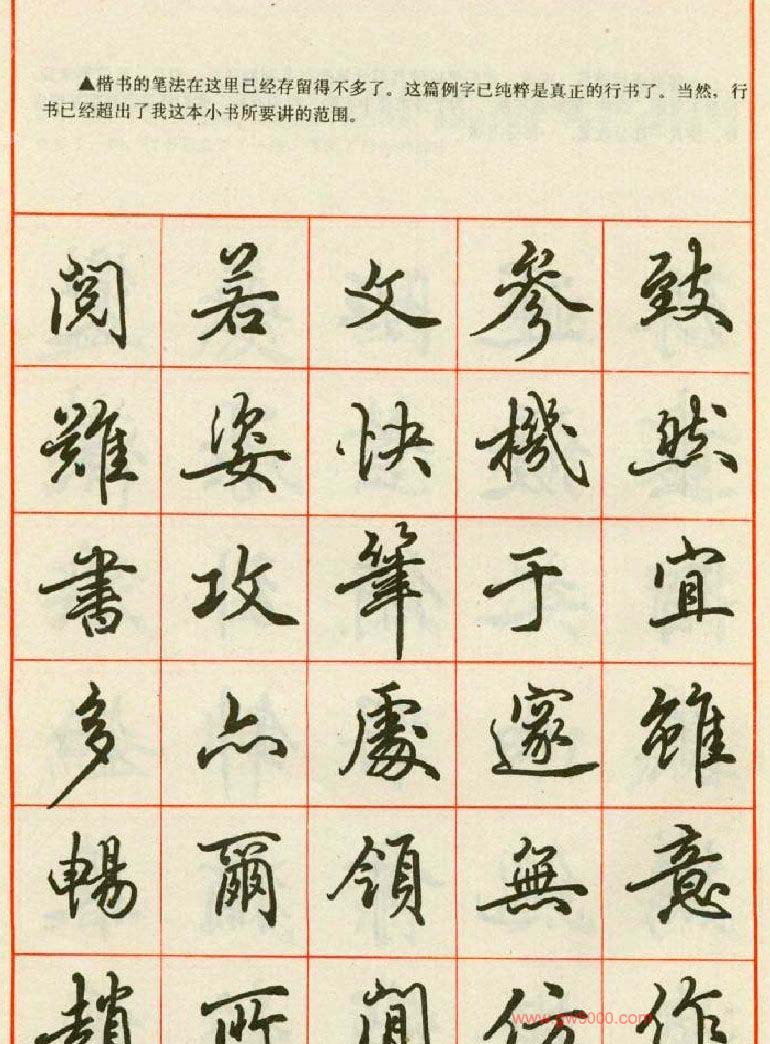 ▲楷书的笔法在这里已经存留得不多了。这篇例字已纯粹是真正的行书了。当然，行
书已经超出了我这本小书所要讲的范围。
致然宜雖意作
參機于邃無仿
文快筆處領間
若姿攻亦爾所
閱難書多暢趙